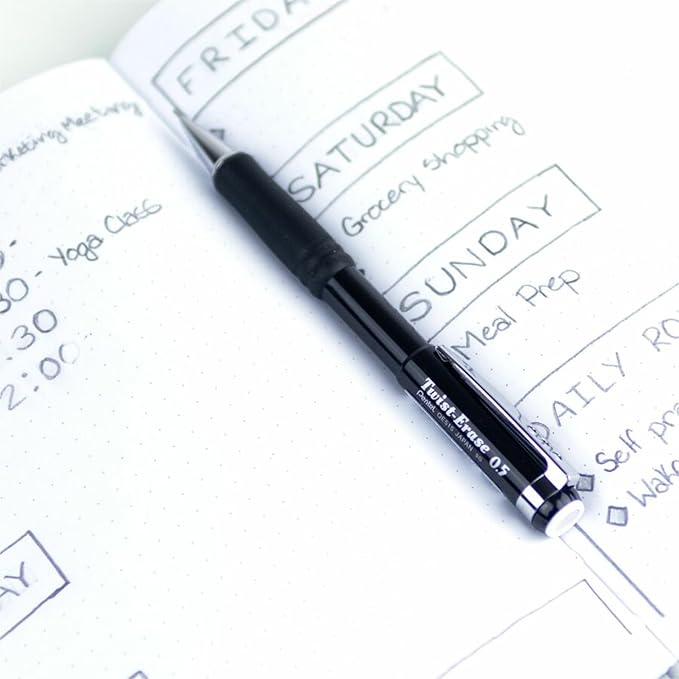 Meeting
- Yoga Class
30
:30
2:00
AY
FRIDAY
SATURDAY
Grocery shopping
SUNDAY
Meal Prep
DAILY RO
Self pra
Wake
Twist-Erase 0.5
Pentel. QE515 JAPAN